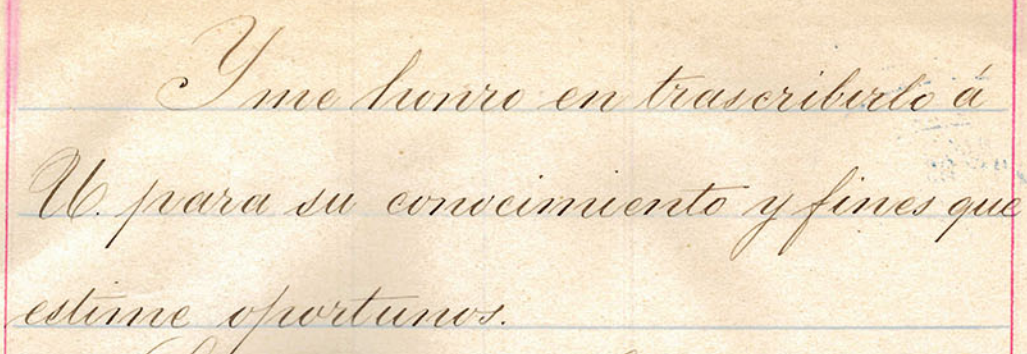 Y me honro en trascribirlo á
U. para su conocimiento y fines que
estime oportunos.